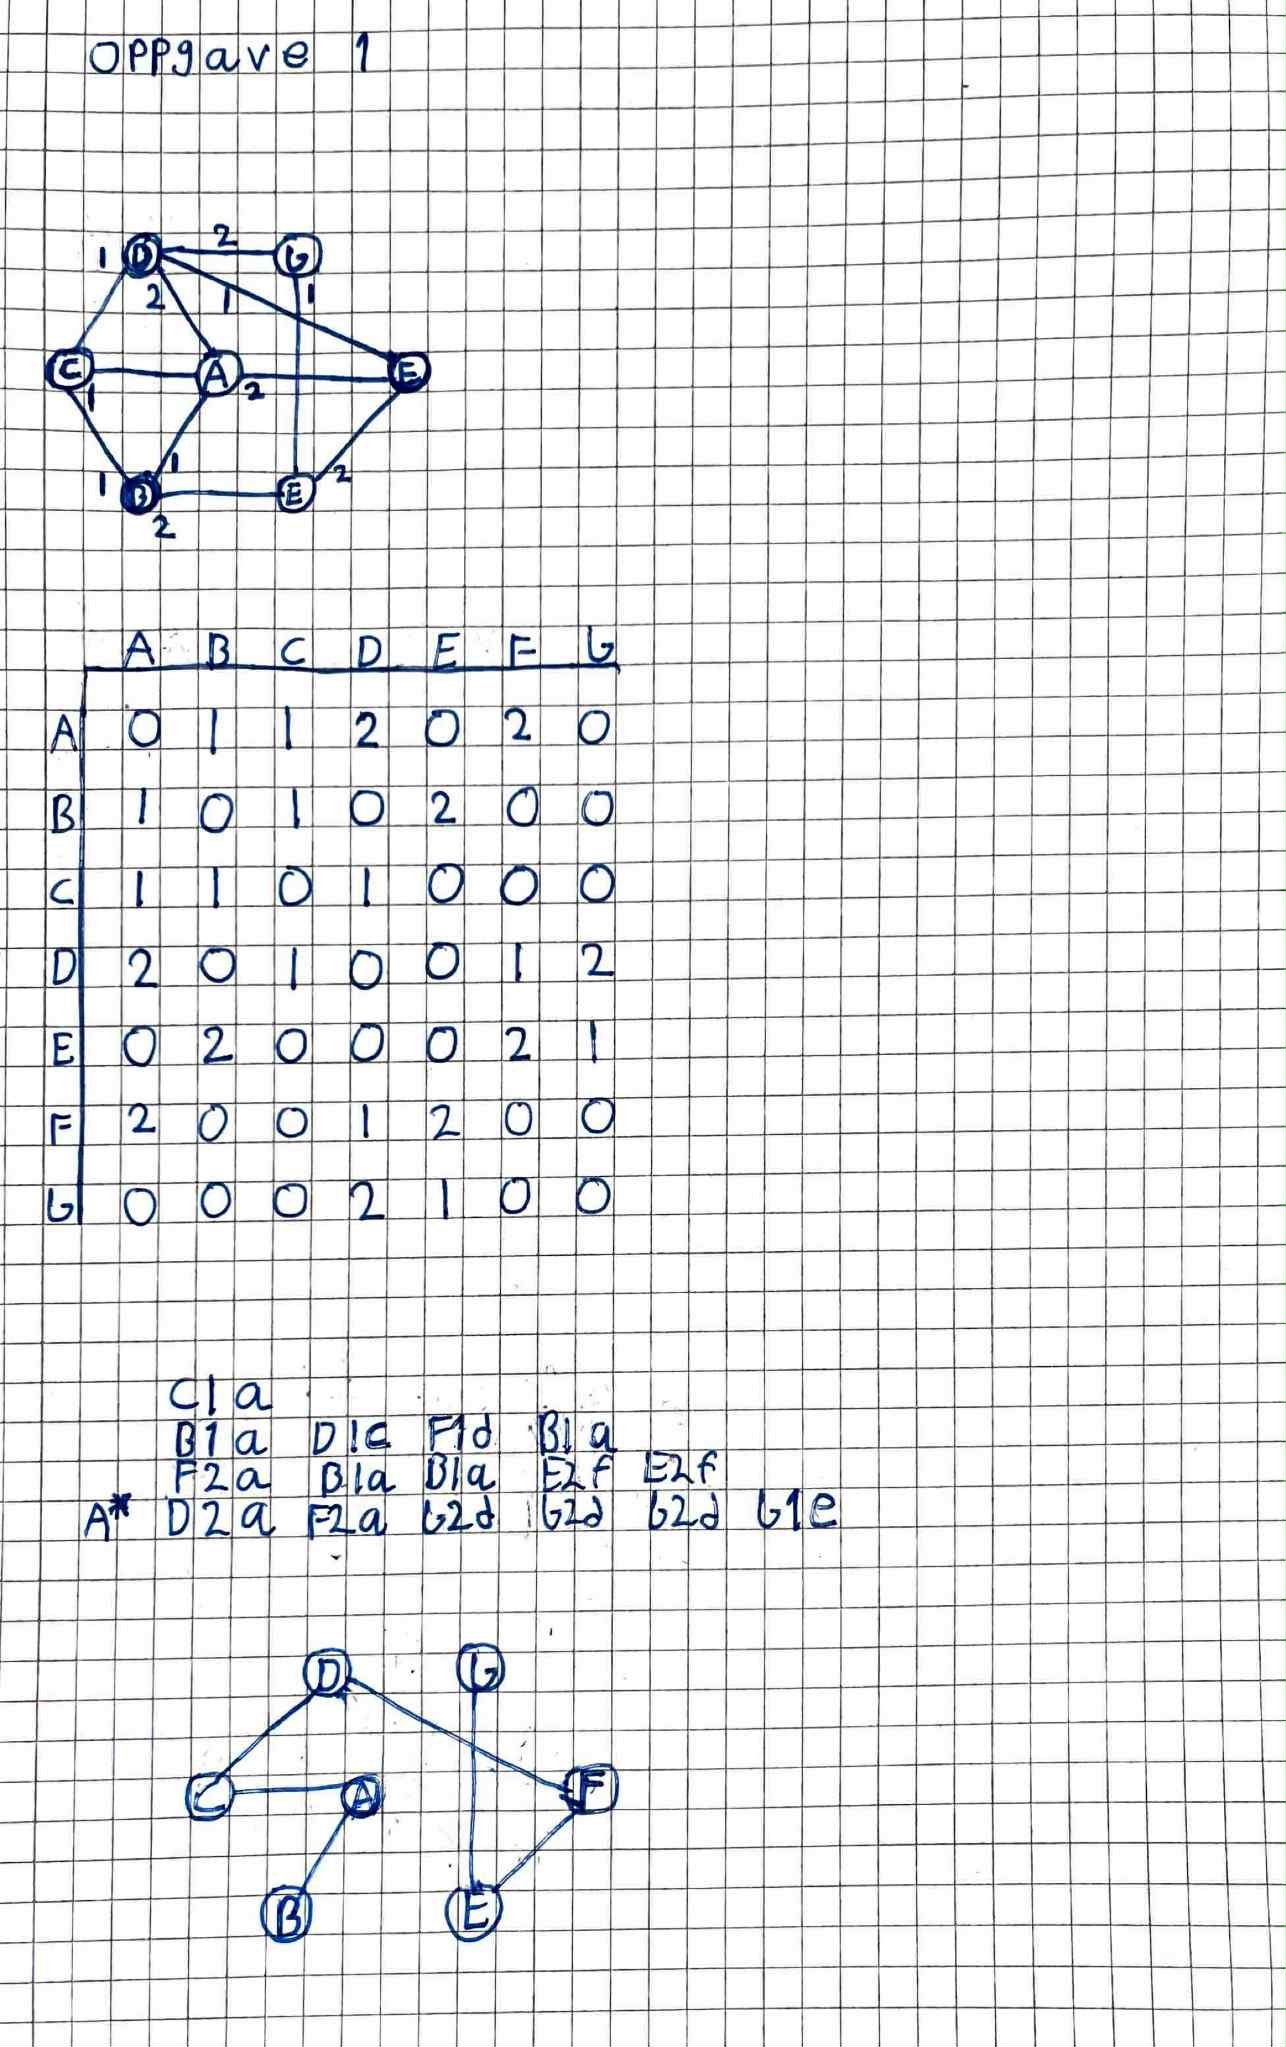 OPPgave 1
2
1 D G
2 1 1
C A E
1 2
1 1 2
1 B E
2
A B C D E F G
A 0 1 1 2 0 2 0
B 1 0 1 0 2 0 0
C 1 1 0 1 0 0 0
D 2 0 1 0 0 1 2
E 0 2 0 0 0 2 1
F 2 0 0 1 2 0 0
G 0 0 0 2 1 0 0
C1a
B1a D1c F1d B1a
F2a B1a B1a E2f E2f
A* D2a F2a G2d G2d G2d G1e
D G
C A F
B E